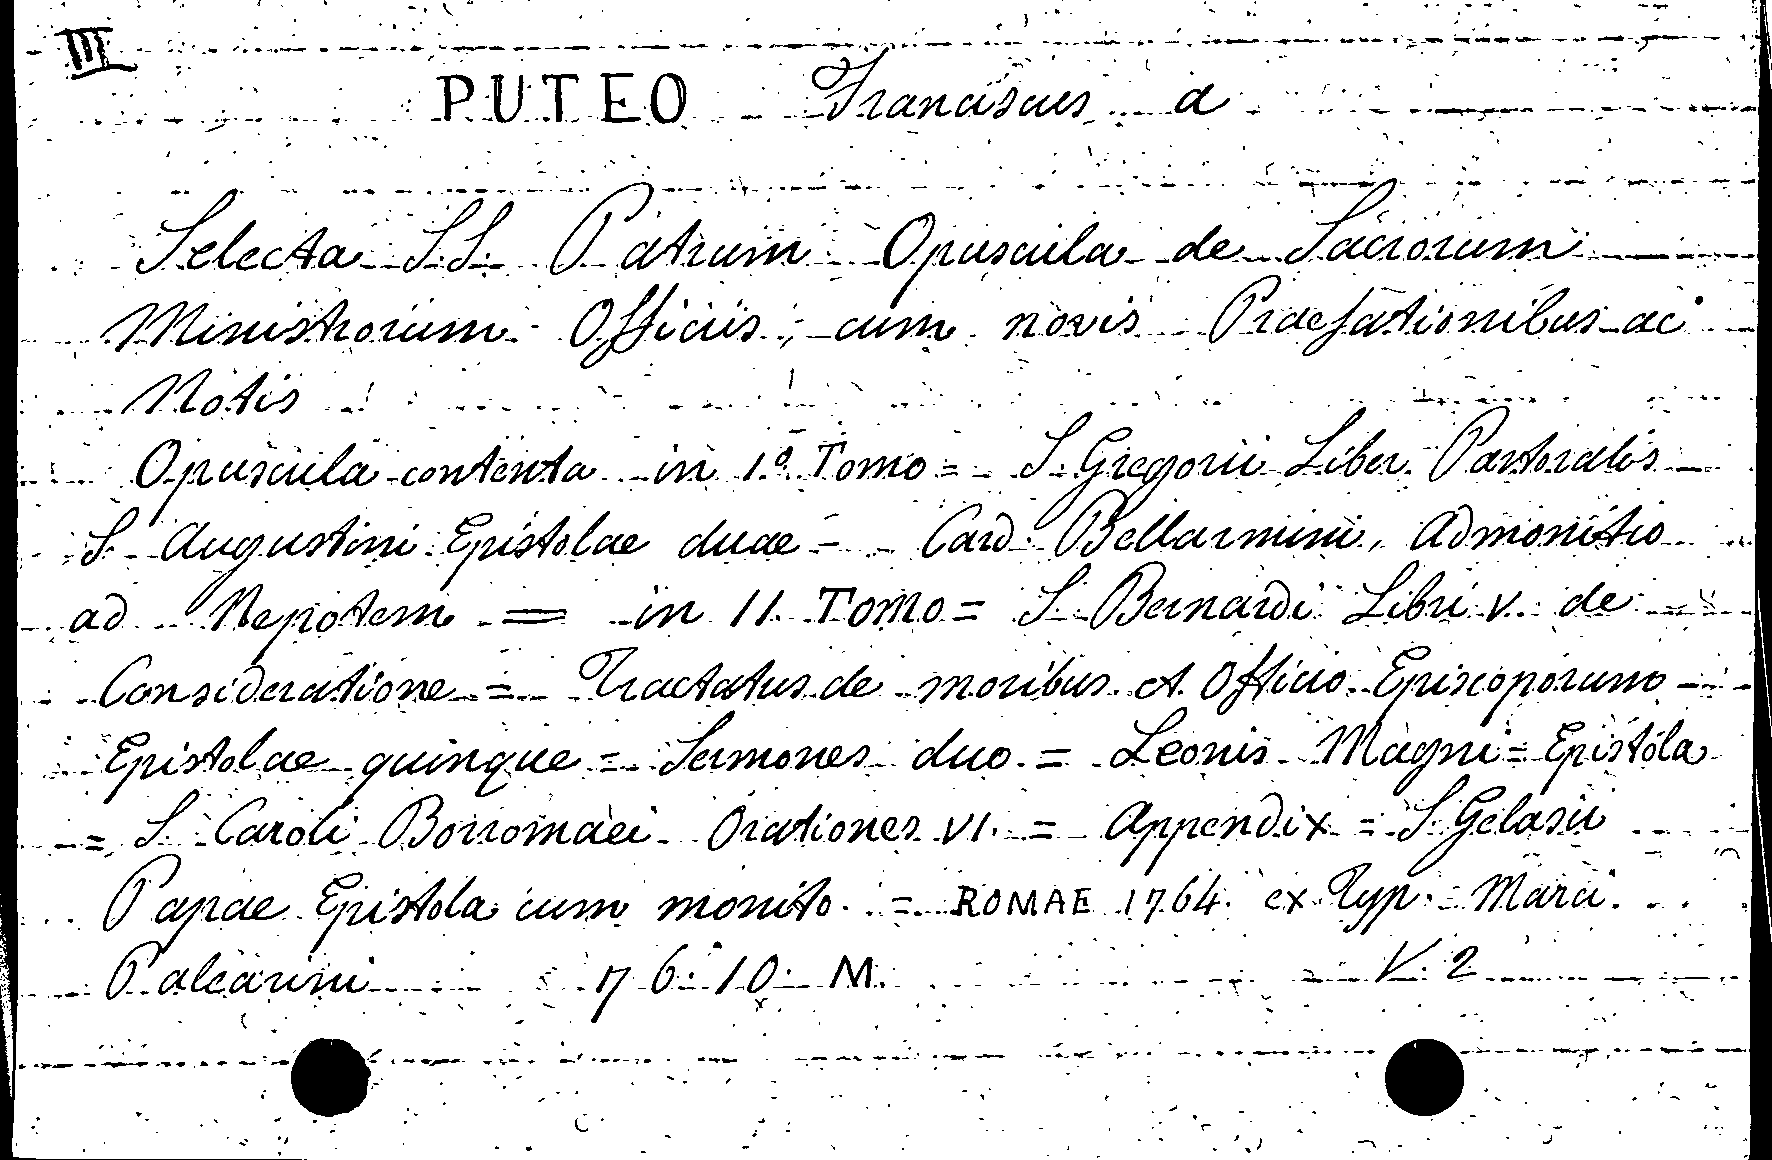 III
PUTEO Franciscus a
Selecta S.S. Patrum Opuscula de Sacrorum
Ministrorum Officiis, cum novis Praefationibus ac
Notis
Opuscula contenta in 1º Tomo = S. Gregorii Liber Pastoralis
S. Augustini Epistolae duae - Card. Bellarmini, Admonitio
ad Nepotem = in II. Tomo = S. Bernardi Libri V. de
Consideratione = Tractatus de moribus et Officio Episcoporum -
Epistolae quinque = Sermones duo = Leonis Magni = Epistola
= S. Caroli Borromaei Orationes VI. = Appendix = S. Gelasii
Papae Epistola cum monito. = ROMAE 1764. ex Typ. Marci
Palearini 76. 10. M. V. 2